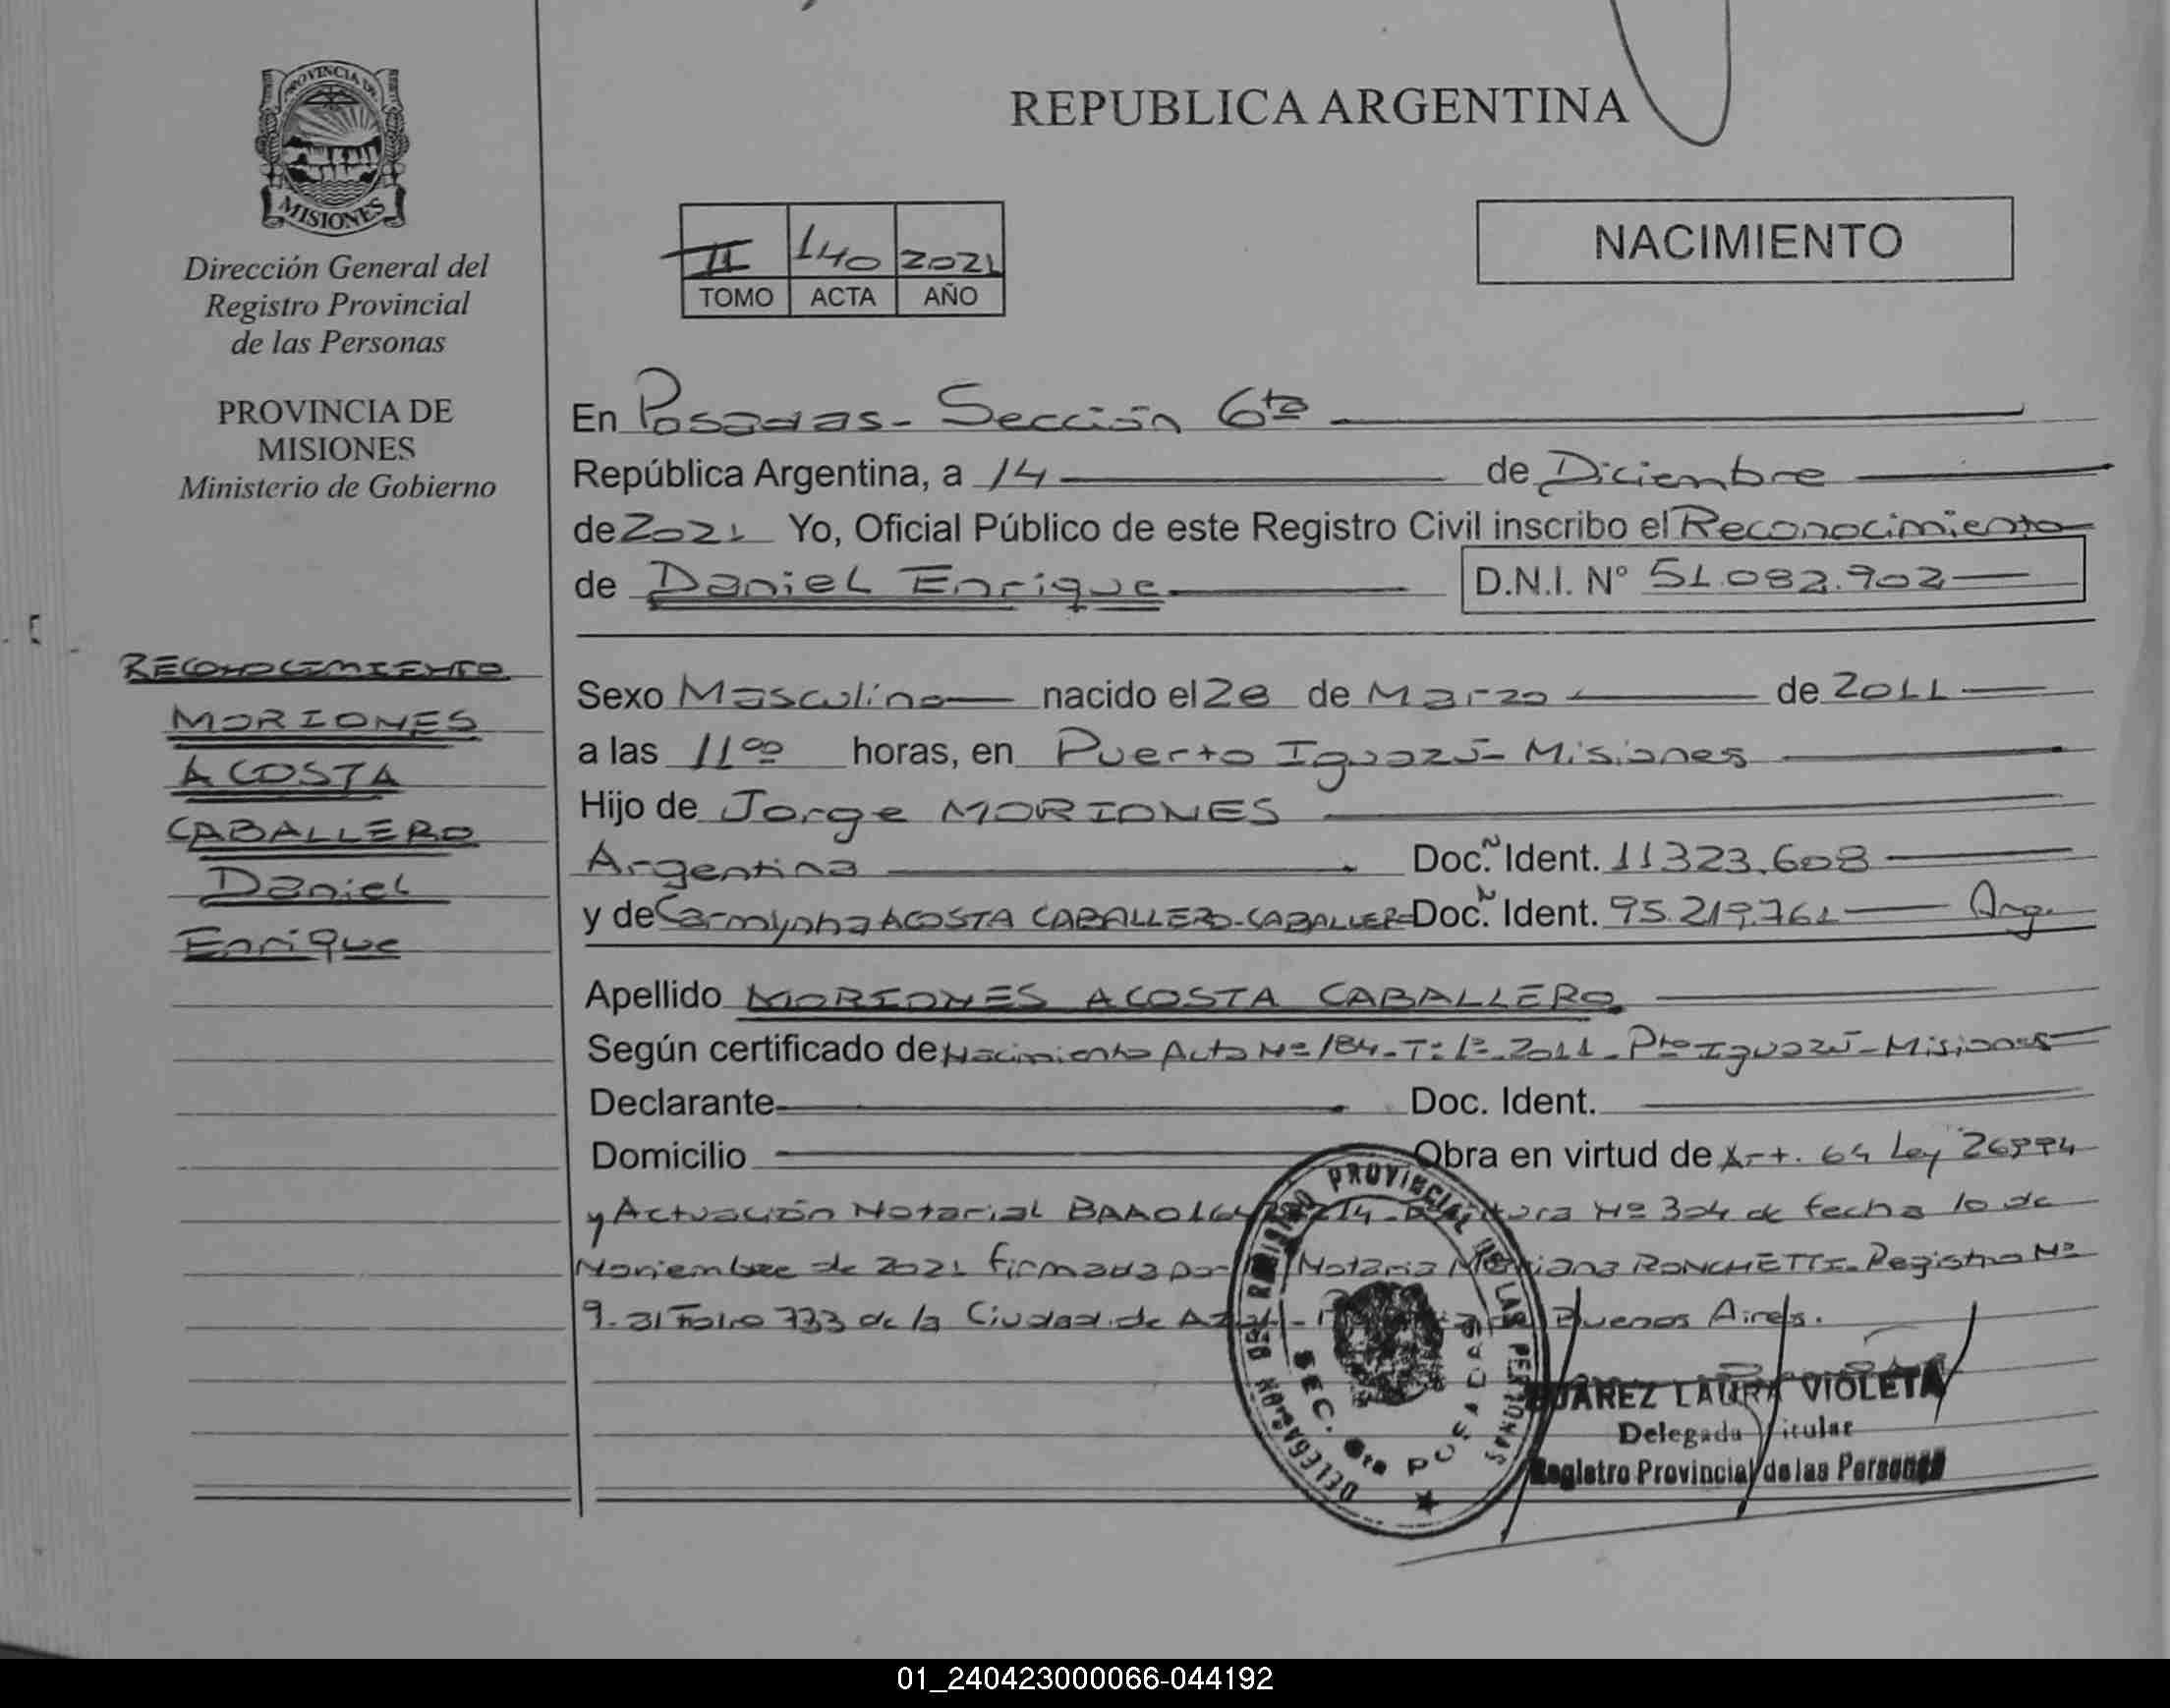 PROVINCIA DE
MISIONES
Dirección General del
Registro Provincial
de las Personas
PROVINCIA DE
MISIONES
Ministerio de Gobierno
RECONOCIMIENTO
MORIONES
ACOSTA
CABALLERO
Daniel
Enrique
REPUBLICA ARGENTINA
II 140 2021
TOMO ACTA AÑO
NACIMIENTO
En Posadas - Sección 6ta
República Argentina, a 14 de Diciembre
de 2021 Yo, Oficial Público de este Registro Civil inscribo el Reconocimiento
de Daniel Enrique D.N.I. N° 51.082.902
Sexo Masculino nacido el 28 de Marzo de 2011
a las 11 00 horas, en Puerto Iguazú - Misiones
Hijo de Jorge MORIONES
Argentina Doc. Ident. 11323.608
y de ACOSTA CABALLERO - CABALLERO Doc. Ident. 95.219.761 Arg.
Apellido MORIONES ACOSTA CABALLERO
Según certificado de Nacimiento Acta Nº 184 - T: 1º - 2011 - Pto Iguazú - Misiones
Declarante Doc. Ident.
Domicilio Obra en virtud de Art. 64 Ley 26994
y Actuación Notarial Nº 304 de fecha 10 de
Noviembre de 2021 firmada por Notaria RONCHETTI - Registro Nº
9 - al Folio 733 de la Ciudad de Buenos Aires.
DELEGACION DEL REGISTRO PROVINCIAL DE LAS PERSONAS
SEC. 6ta POSADAS
SUAREZ LAURA VIOLETA
Delegada Titular
Registro Provincial de las Personas
01_240423000066-044192